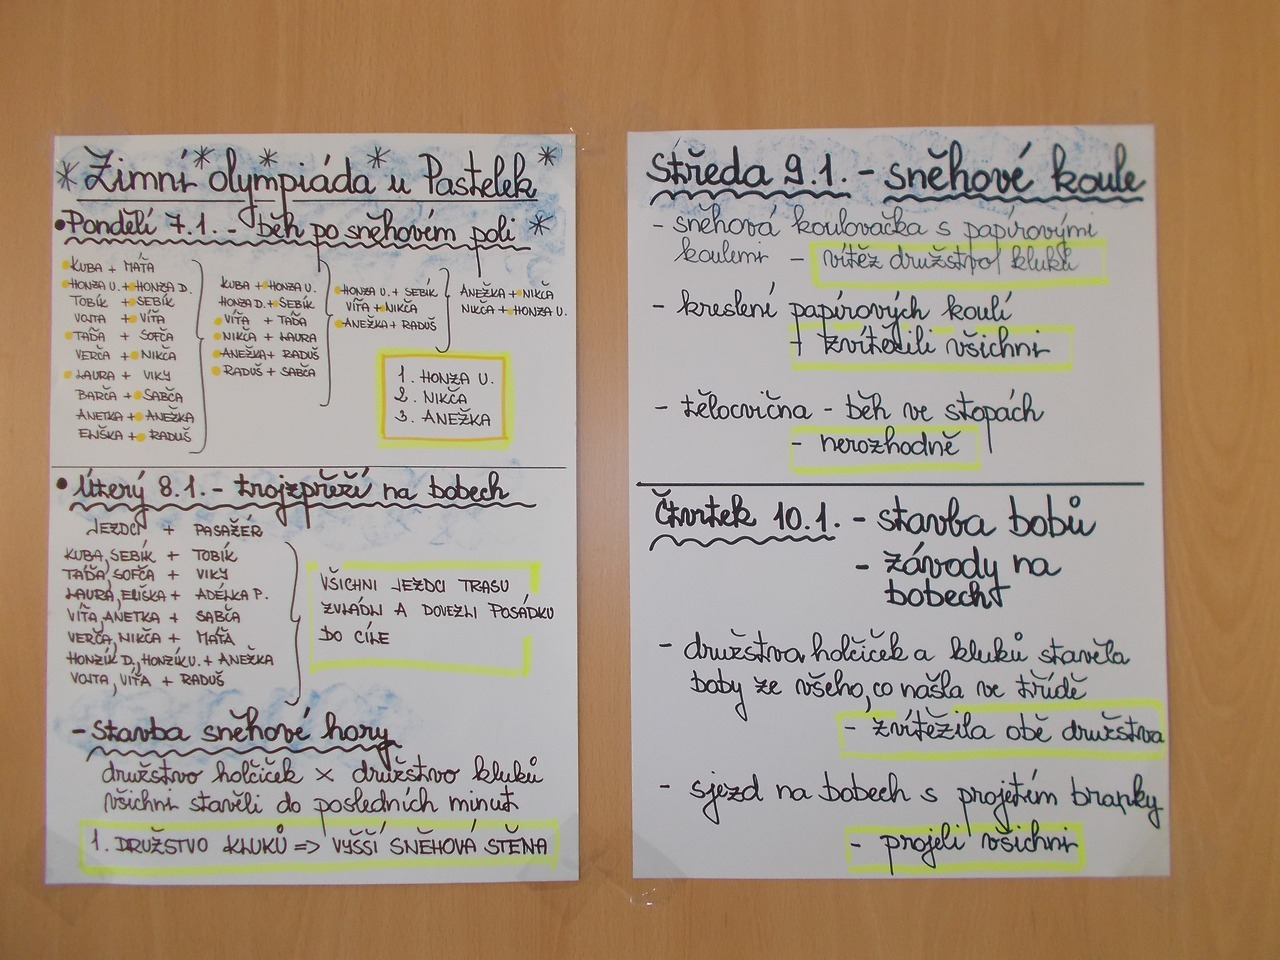 Zimní olympiáda u Pastelek
• Pondělí 7.1. - běh po sněhovém poli
KUBA + MÁŤA
HONZA U. + HONZA D.
TOBÍK + SEBÍK
VOJTA + VÍŤA
TÁĎA + SOFČA
VERČA + NIKČA
LAURA + VIKY
BARČA + SABČA
ANETKA + ANEŽKA
ELIŠKA + RADUŠ
KUBA + HONZA U.
HONZA D. + SEBÍK
VÍŤA + TÁĎA
NIKČA + LAURA
ANEŽKA + RADUŠ
RADUŠ + SABČA
HONZA U. + SEBÍK
VÍŤA + NIKČA
ANEŽKA + RADUŠ
ANEŽKA + NIKČA
NIKČA + HONZA U.
1. HONZA U.
2. NIKČA
3. ANEŽKA
• Úterý 8.1. - trojzpřeží na bobech
JEZDCI + PASAŽÉR
KUBA, SEBÍK + TOBÍK
TÁĎA, SOFČA + VIKY
LAURA, ELIŠKA + ADÉLKA P.
VÍŤA, ANETKA + SABČA
VERČA, NIKČA + MÁŤA
HONZÍK D., HONZÍK U. + ANEŽKA
VOJTA, VÍŤA + RADUŠ
VŠICHNI JEZDCI TRASU
ZVLÁDLI A DOVEZLI POSÁDKU
DO CÍLE
- Stavba sněhové hory
družstvo holčiček x družstvo kluků
všichni stavěli do posledních minut
1. DRUŽSTVO KLUKŮ => VYŠŠÍ SNĚHOVÁ STĚNA
Středa 9.1. - sněhové koule
- sněhová koulovačka s papírovými
koulemi - vítěz družstvo kluků
- kreslení papírových koulí
- zvítězili všichni
- tělocvična - běh ve stopách
- nerozhodně
Čtvrtek 10.1. - stavba bobů
- závody na
bobech
- družstva holčiček a kluků stavěla
boby ze všeho, co našla ve třídě
- zvítězila obě družstva
- sjezd na bobech s projetím branky
- projeli všichni